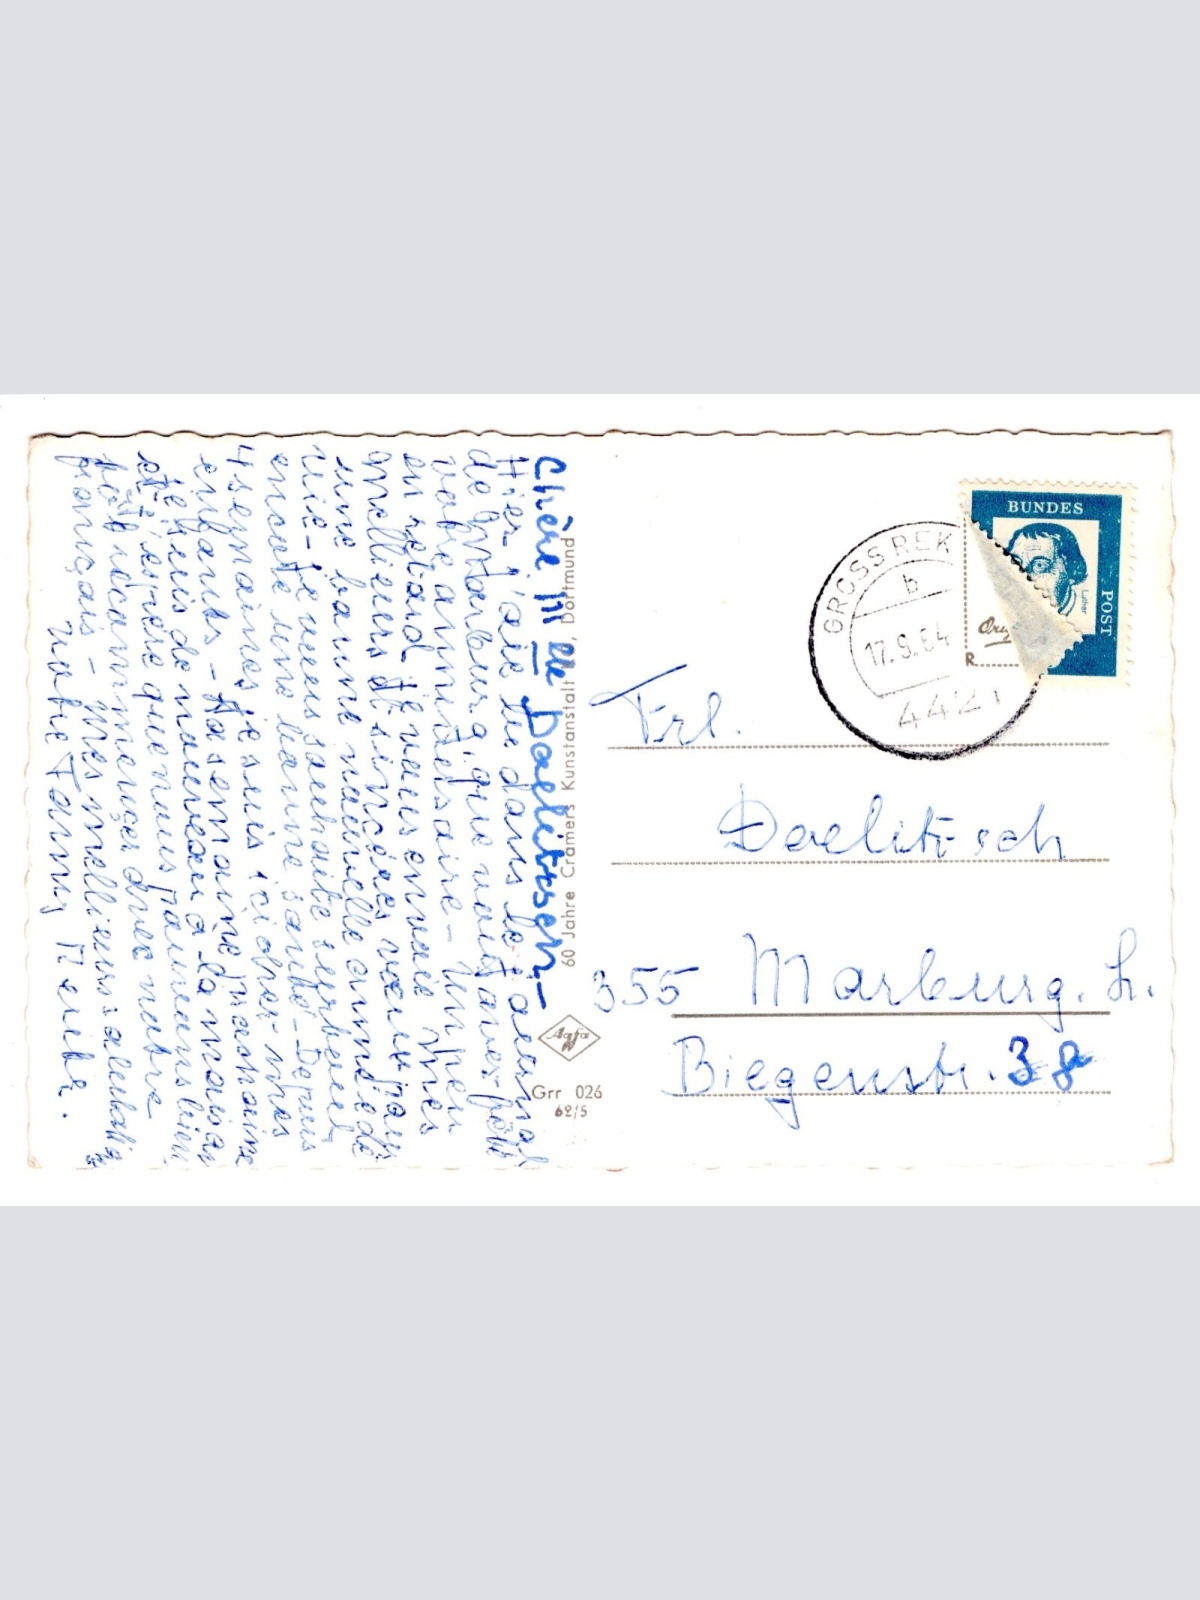 Chère Mlle Daelitsch -
Hier j'ai lu dans le journal
de Marburg, que vous avez fêté
votre anniversaire - Un peu
en retard je vous envoie mes
meilleurs et sincères vœux pour
une bonne nouvelle année de
vie - je vous souhaite surtout
encore une bonne santé - Depuis
4 semaines je suis ici chez mes
enfants - La semaine prochaine
je suis de nouveau à la maison
et j'espère que nous pouvons bien
tôt recommencer avec notre
français - Mes meilleurs
Votre Fanny
60 Jahre Cramers Kunstanstalt, Dortmund
Agfa
Grr 026
62/5
BUNDES
POST
Luther
GROSS REK
b
17. 9. 64
4421
R
Frl.
Daelitsch
355 Marburg. L.
Biegenstr. 38